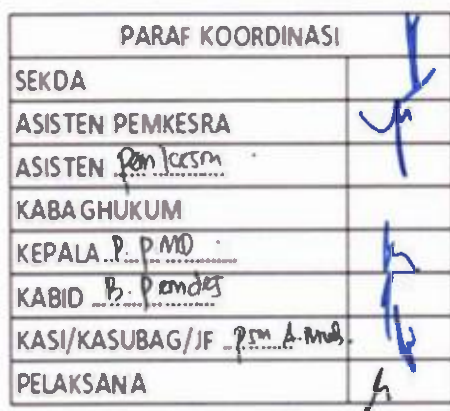 PARAF KOORDINASI
SEKDA
ASISTEN PEMKESRA
ASISTEN
KABAGHUKUM
KEPALA P. PMD
KABID B. Pemdes
KASI/KASUBAG/JF
PELAKSANA